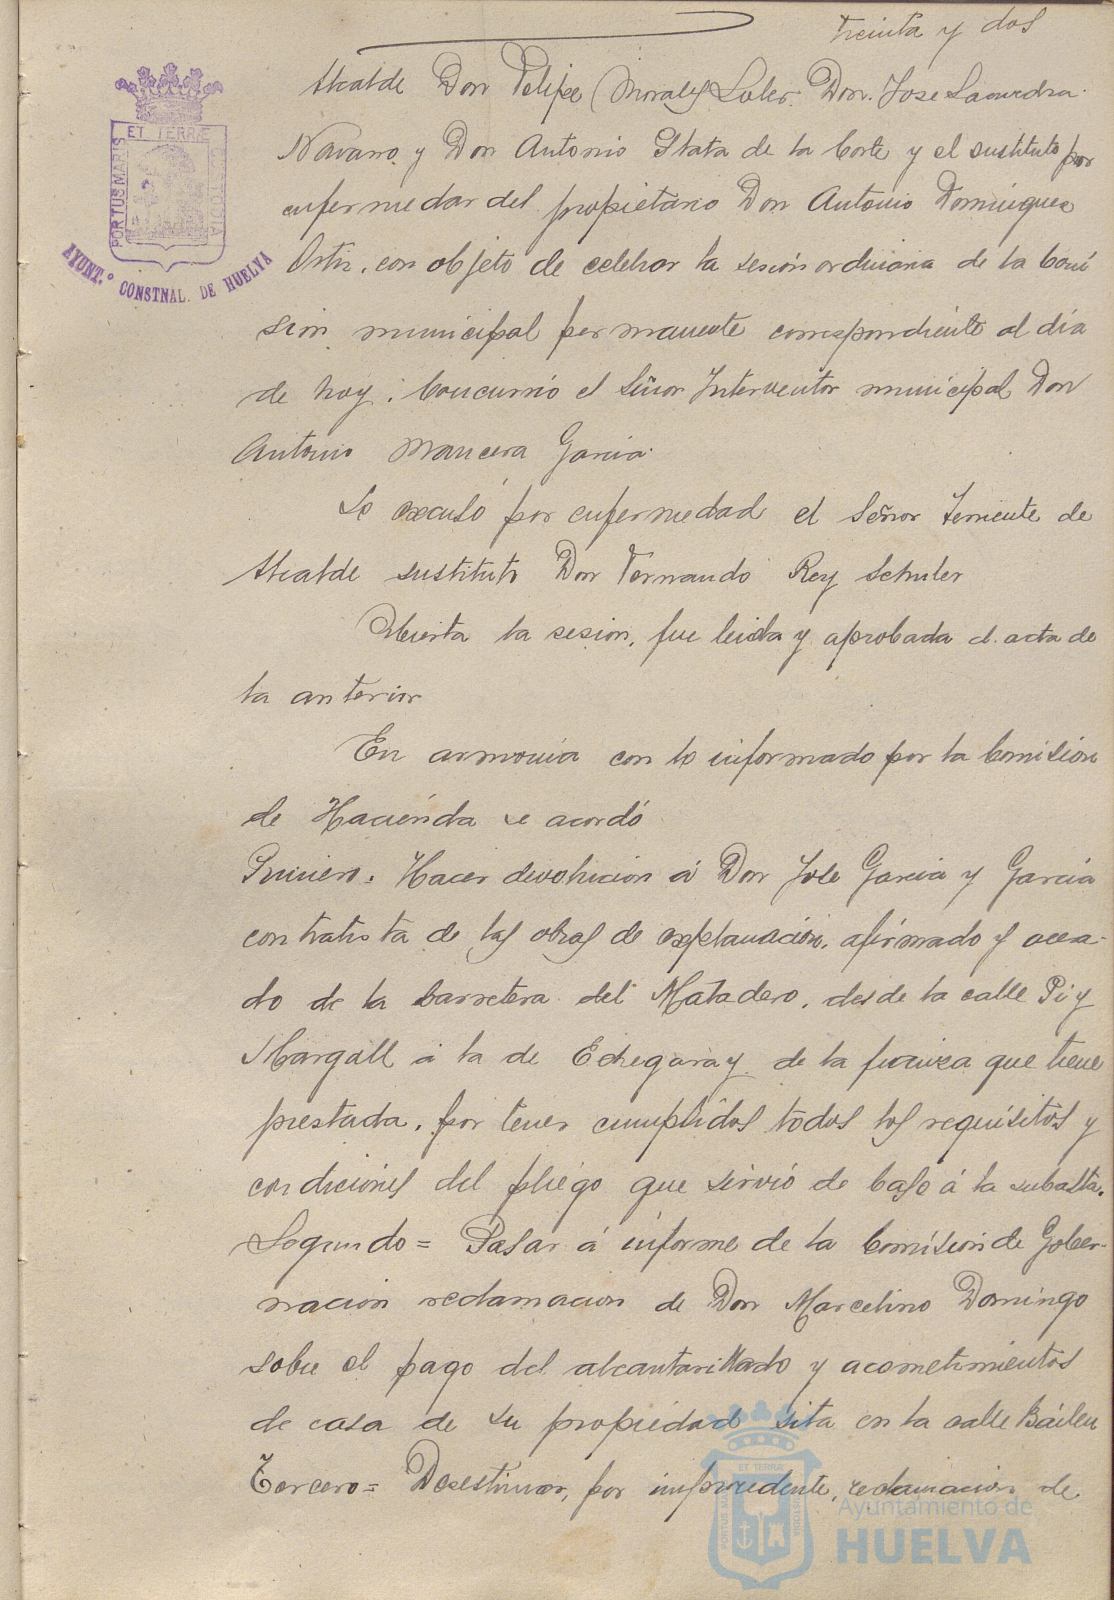 treinta y dos
Alcalde Don Felipe Morales Soler. Don. Jose Saavedra
Navarro, y Don Antonio Plata de la Corte y el sustituto por
enfermedad del propietario Don Antonio Dominguez
Ortiz, con objeto de celebrar la sesión ordinaria de la Comi
sion municipal permanente correspondiente al dia
de hoy. Concurrió el Señor Interventor municipal Don
Antonio Mancera Garcia.
Se excusó por enfermedad el Señor Teniente de
Alcalde sustituto Don Fernando Rey Schuler
Abierta la sesion, fue leida y aprobada el acta de
la anterior
En armonia con lo informado por la Comision
de Hacienda se acordó
Primero = Hacer devolucion á Don Jose Garcia y Garcia
contratista de las obras de explanación, afirmado y acera-
do de la Carretera del Matadero, desde la calle Pi y
Margall á la de Echegaray de la fianza que tiene
prestada, por tener cumplidos todos los requisitos y
condiciones del pliego que sirvió de base á la subasta.
Segundo = Pasar á informe de la Comision de Gober-
nacion reclamacion de Don Marcelino Domingo
sobre el pago del alcantarillado y acometimientos
de casa de su propiedad sita en la calle Báilen
Tercero = Desestimar, por improcedente, reclamacion de
ET TERRÆ
PORTUS MARIS
CUSTODIA
AYUNT.º CONSTNAL. DE HUELVA
Ayuntamiento de
HUELVA